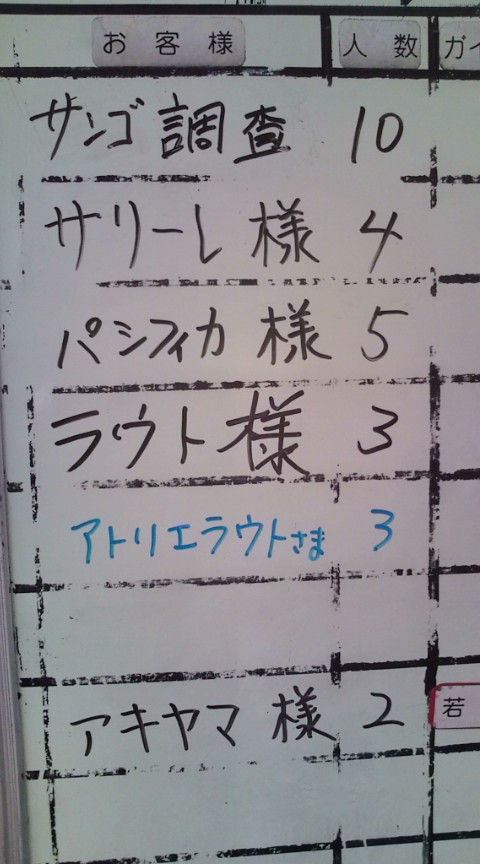 お客様 人数 ガイ
サンゴ調査 10
サリーレ様 4
パシフィカ様 5
ラウト様 3
アトリエラウトさま 3
アキヤマ様 2 若